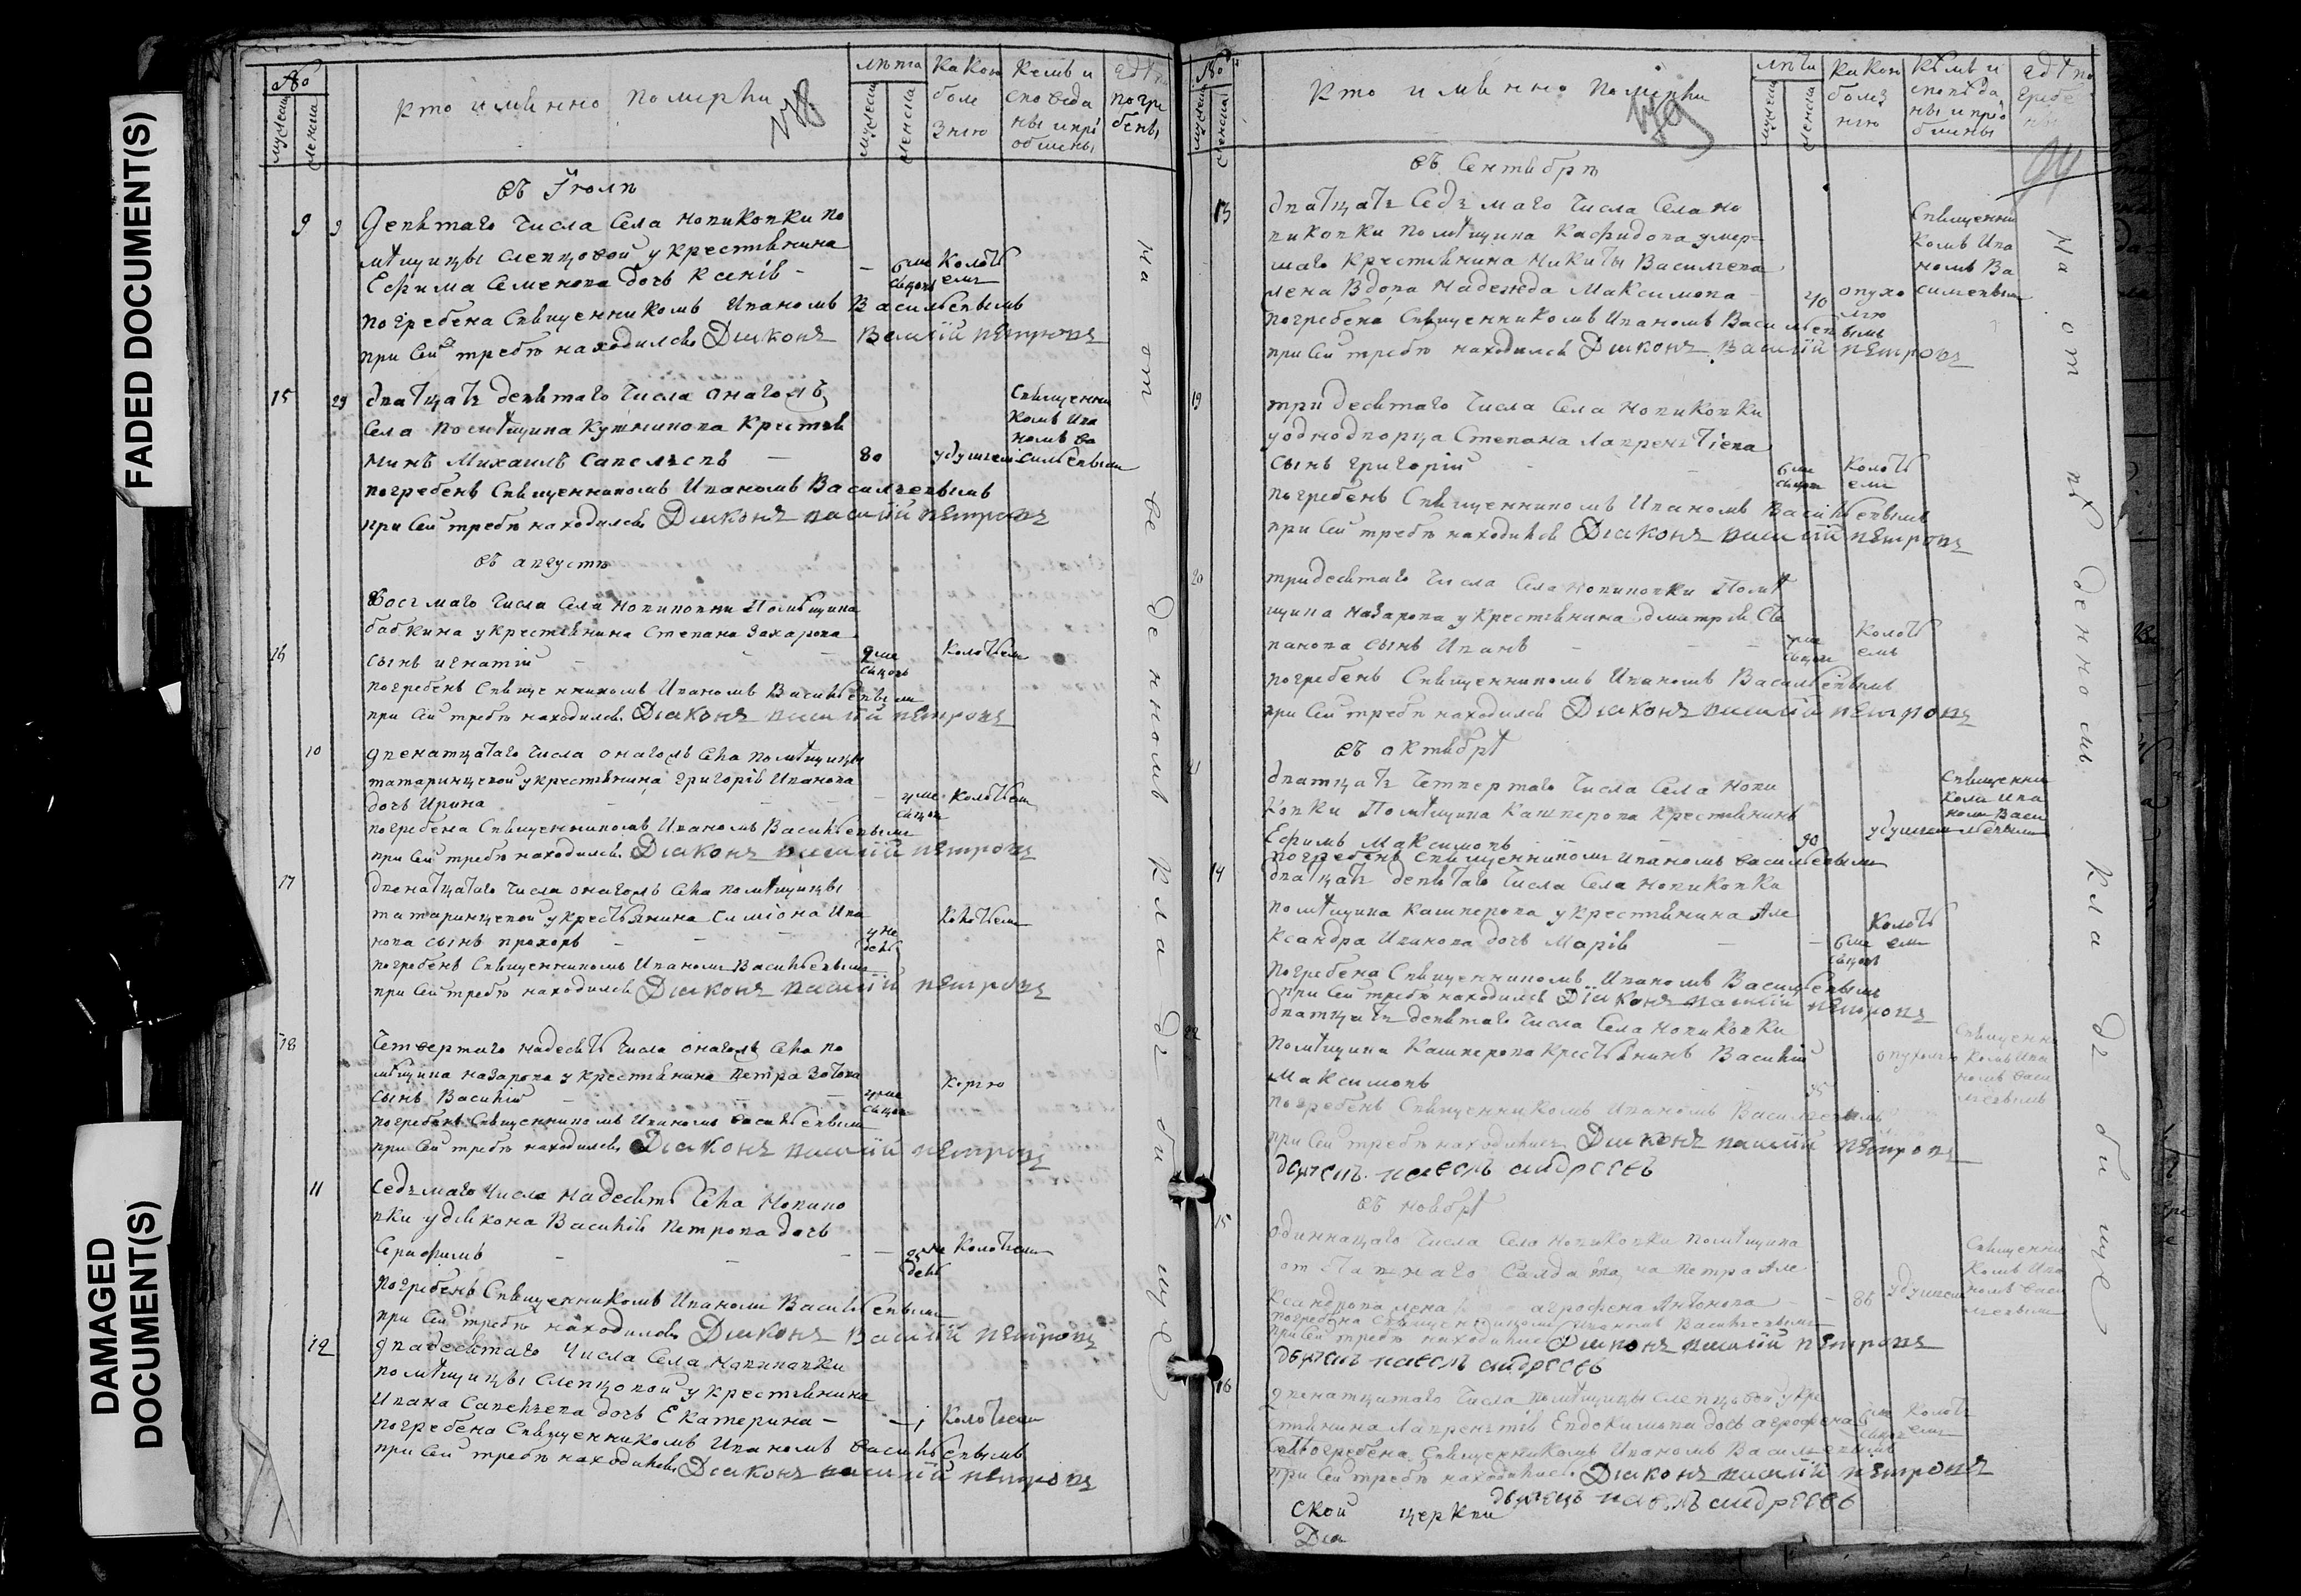 FADED DOCUMENT(S)
DAMAGED
DOCUMENT(S)
№
мужеска
женска
кто имѣнно померли
лѣта
мужеска
женска
какою
боле
знию
кемъ и
споведа
ны и прі
обшены
гдѣ
погре
бены
въ Июлѣ
9 9 Девятаго числа села новиковки по
мѣщицы слепцовой у крестянина
Ефима Семенова дочь Ксенія – – 6 ме сяцовъ колотьемъ
погребена Священникомъ Иваномъ Васильевымъ
при сей требѣ находился Диконъ Василій Петровъ
15 29 дватцать девятаго числа онагожъ
села помѣщика Кутнинова Крестья
нинъ Михаилъ Савельевъ – 80 удушьемъ
Священни
комъ Ива
номъ Ва
сильевымъ
погребенъ Священникомъ Иваномъ Васильевымъ
при сей требѣ находился Диконъ василій Петровъ
въ августѣ
Восмаго числа села новиковки Помѣщика
бабкина у крестянина Степана Захарова
16 сынъ игнатій – – – 9 ме сяцовъ колотьемъ
погребенъ Священникомъ Иваномъ Васильевымъ
при сей требѣ находился Діаконъ василій Петровъ
10 двенатцатаго числа онагожъ села помѣщицы
татаринцевой у крестянина григорія Иванова
дочь Ирина – – – 4 ме сяцов колотьемъ
погребена Священникомъ Иваномъ Васильевымъ
при сей требѣ находился Діаконъ василій Петровъ
17 двенатцатаго числа онагожъ села помѣщицы
татаринцевой у крестьянина симіона Ива
нова сынъ прохоръ – – – 4 не дель колотьемъ
погребенъ Священникомъ Иваномъ Васильевымъ
при сей требѣ находился Діаконъ василій Петровъ
18 четвертаго надесять числа онагожъ села по
мѣщика назарова у крестянина Петра Зотова
сынъ Василій – – 4 ме сяцов корью
погребенъ Священникомъ Иваномъ васильевымъ
при сей требѣ находился Діаконъ василій Петровъ
11 седьмаго числа надесять села новико
вки у дікона Василія Петрова дочь
Серафимъ – – – не дель колотьемъ
погребенъ Священникомъ Иваномъ Васильевымъ
при сей требѣ находился Диконъ Василій Петровъ
12 двадесятаго числа села новиковки
помѣщицы слепцовой у крестянина
Ивана Савельева дочь Екатерина – – 1 колотьемъ
погребена Священникомъ Иваномъ васильевымъ
при сей требѣ находился Діаконъ василій Петровъ
на отведенномъ кладбище
№
мужеска
женска
кто имѣнно померли
лѣта
мужеска
женска
какою
болез
нию
кѣмъ и
споведа
ны и прио
бшены
гдѣ по
гребе
ны
94
въ Сентябрѣ
13 дватцать седьмаго числа села но
виковки помѣщика Касфидова умер=
шаго крестянина никиты Васильева
жена вдова надежда Максимова – 40 опухо лью
Священни
комъ Ива
номъ Ва
сильевым
погребена Священникомъ Иваномъ Васильевымъ
при сей требѣ находился Диконъ Василій Петровъ
19 тридесятаго числа села новиковки
у однодворца Степана лаврентіева
сынъ григорій – – 6 ме сяцов колоть емъ
погребенъ Священникомъ Иваномъ Васильевымъ
при сей требѣ находился Діаконъ василій Петровъ
20 тридесятаго числа села новиковки помѣ
щика назарова у крестянина дмитрія Сте
панова сынъ Иванъ – – – ме сяцов колоть емъ
погребенъ Священникомъ Иваномъ Васильевымъ
при сей требѣ находился Діаконъ василій Петровъ
въ октябрѣ
21 дватцать четвертаго числа села нови
ковки Помѣщика Кашперова крестянинъ
Ефимъ Максимовъ – – 90 удушьем
Священни
комъ Ива
номъ Васи
льевым
погребенъ Священникомъ Иваномъ васильевымъ
14 дватцать девятаго числа села новиковки
помѣщика Кашперова у крестянина Але
ксандра Иванова дочь Марія – – 6 ме сяцов колоть емъ
погребена Священникомъ Иваномъ Васильевымъ
при сей требѣ находился Діаконъ василій Петровъ
22 дватцать девятаго числа села новиковки
помѣщика Кашперова крестьянинъ Василій
Максимовъ опухолью
Священни
комъ Ива
номъ васи
льевымъ
погребенъ Священникомъ Иваномъ Васильевымъ
при сей требѣ находился Диконъ василій Петровъ
дьячекъ павелъ андреевъ
въ ноябрѣ
15 Одиннацаго числа села новиковки помѣщика
салдата Петра Але
ксандрова жена агрофена Антонова – – 86 удушьем
Священни
комъ Ива
номъ васи
льевым
погребена Священникомъ Иваномъ Васильевымъ
при сей требѣ находился Диконъ василій Петровъ
дьячекъ павелъ андреевъ
16 двенатцатаго числа помѣщицы слепцовой у кре
стянина лаврентія Евдокимова дочь агрофена ме сяцов колоть емъ
погребена Священникомъ Иваномъ Васильевымъ
при сей требѣ находился Діаконъ василій Петровъ
дьячекъ павелъ андреевъ
ской церкви
Діа
На отведенномъ кладбище